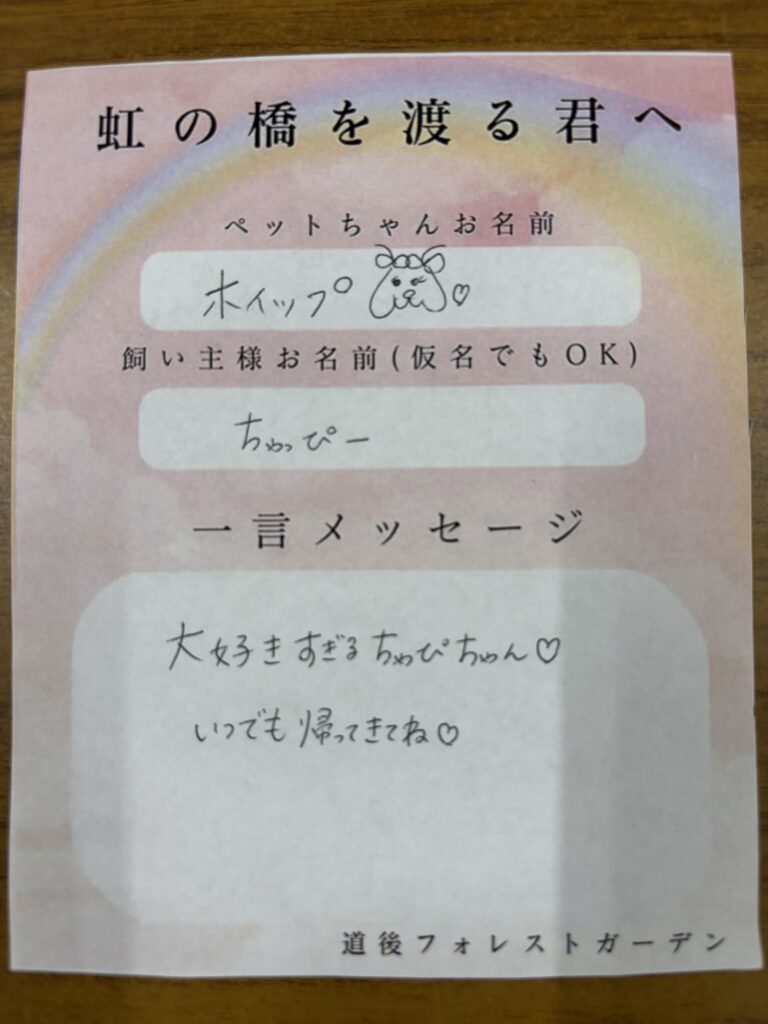 虹の橋を渡る君へ
ペットちゃんお名前
ホイップ♡
飼い主様お名前(仮名でもOK)
ちゃっぴー
一言メッセージ
大好きすぎるちゃぴちゃん♡
いつでも帰ってきてね♡
道後フォレストガーデン